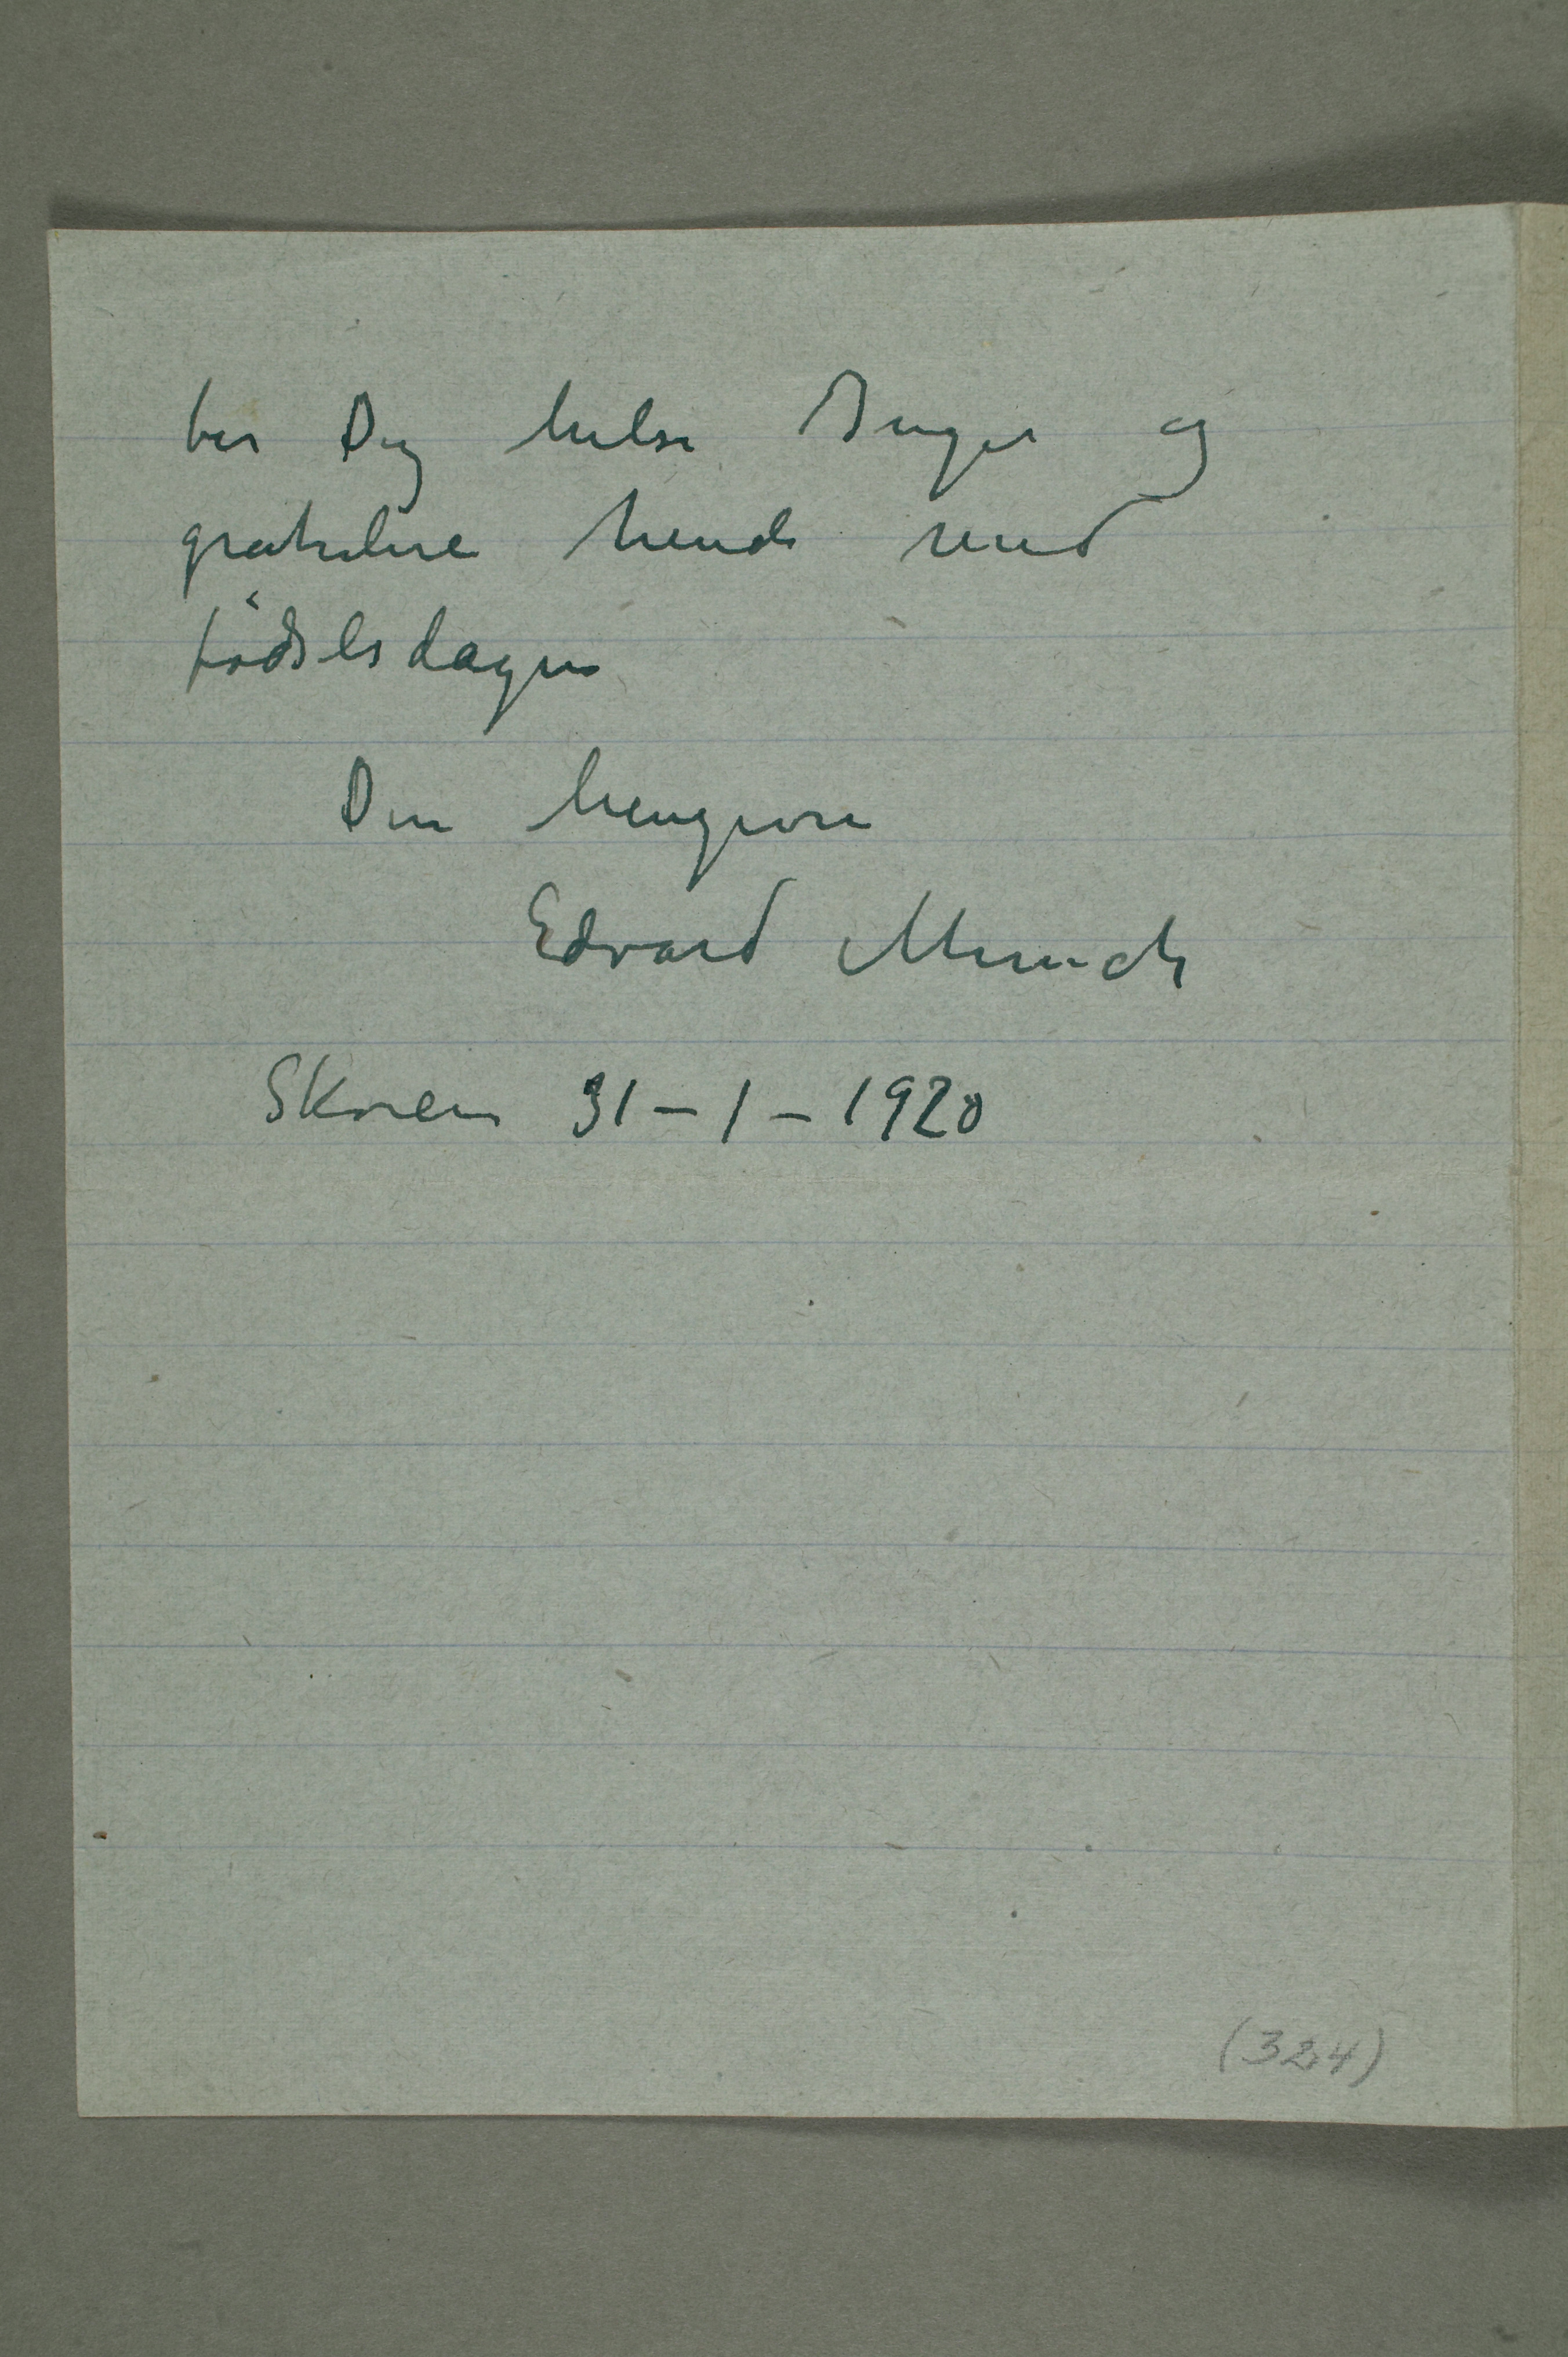 ber Dig hilse Inger og
gratulere hende med
födselsdagen
Din hengivne
Edvard Munch
Skøien 31–1–1920
(324)